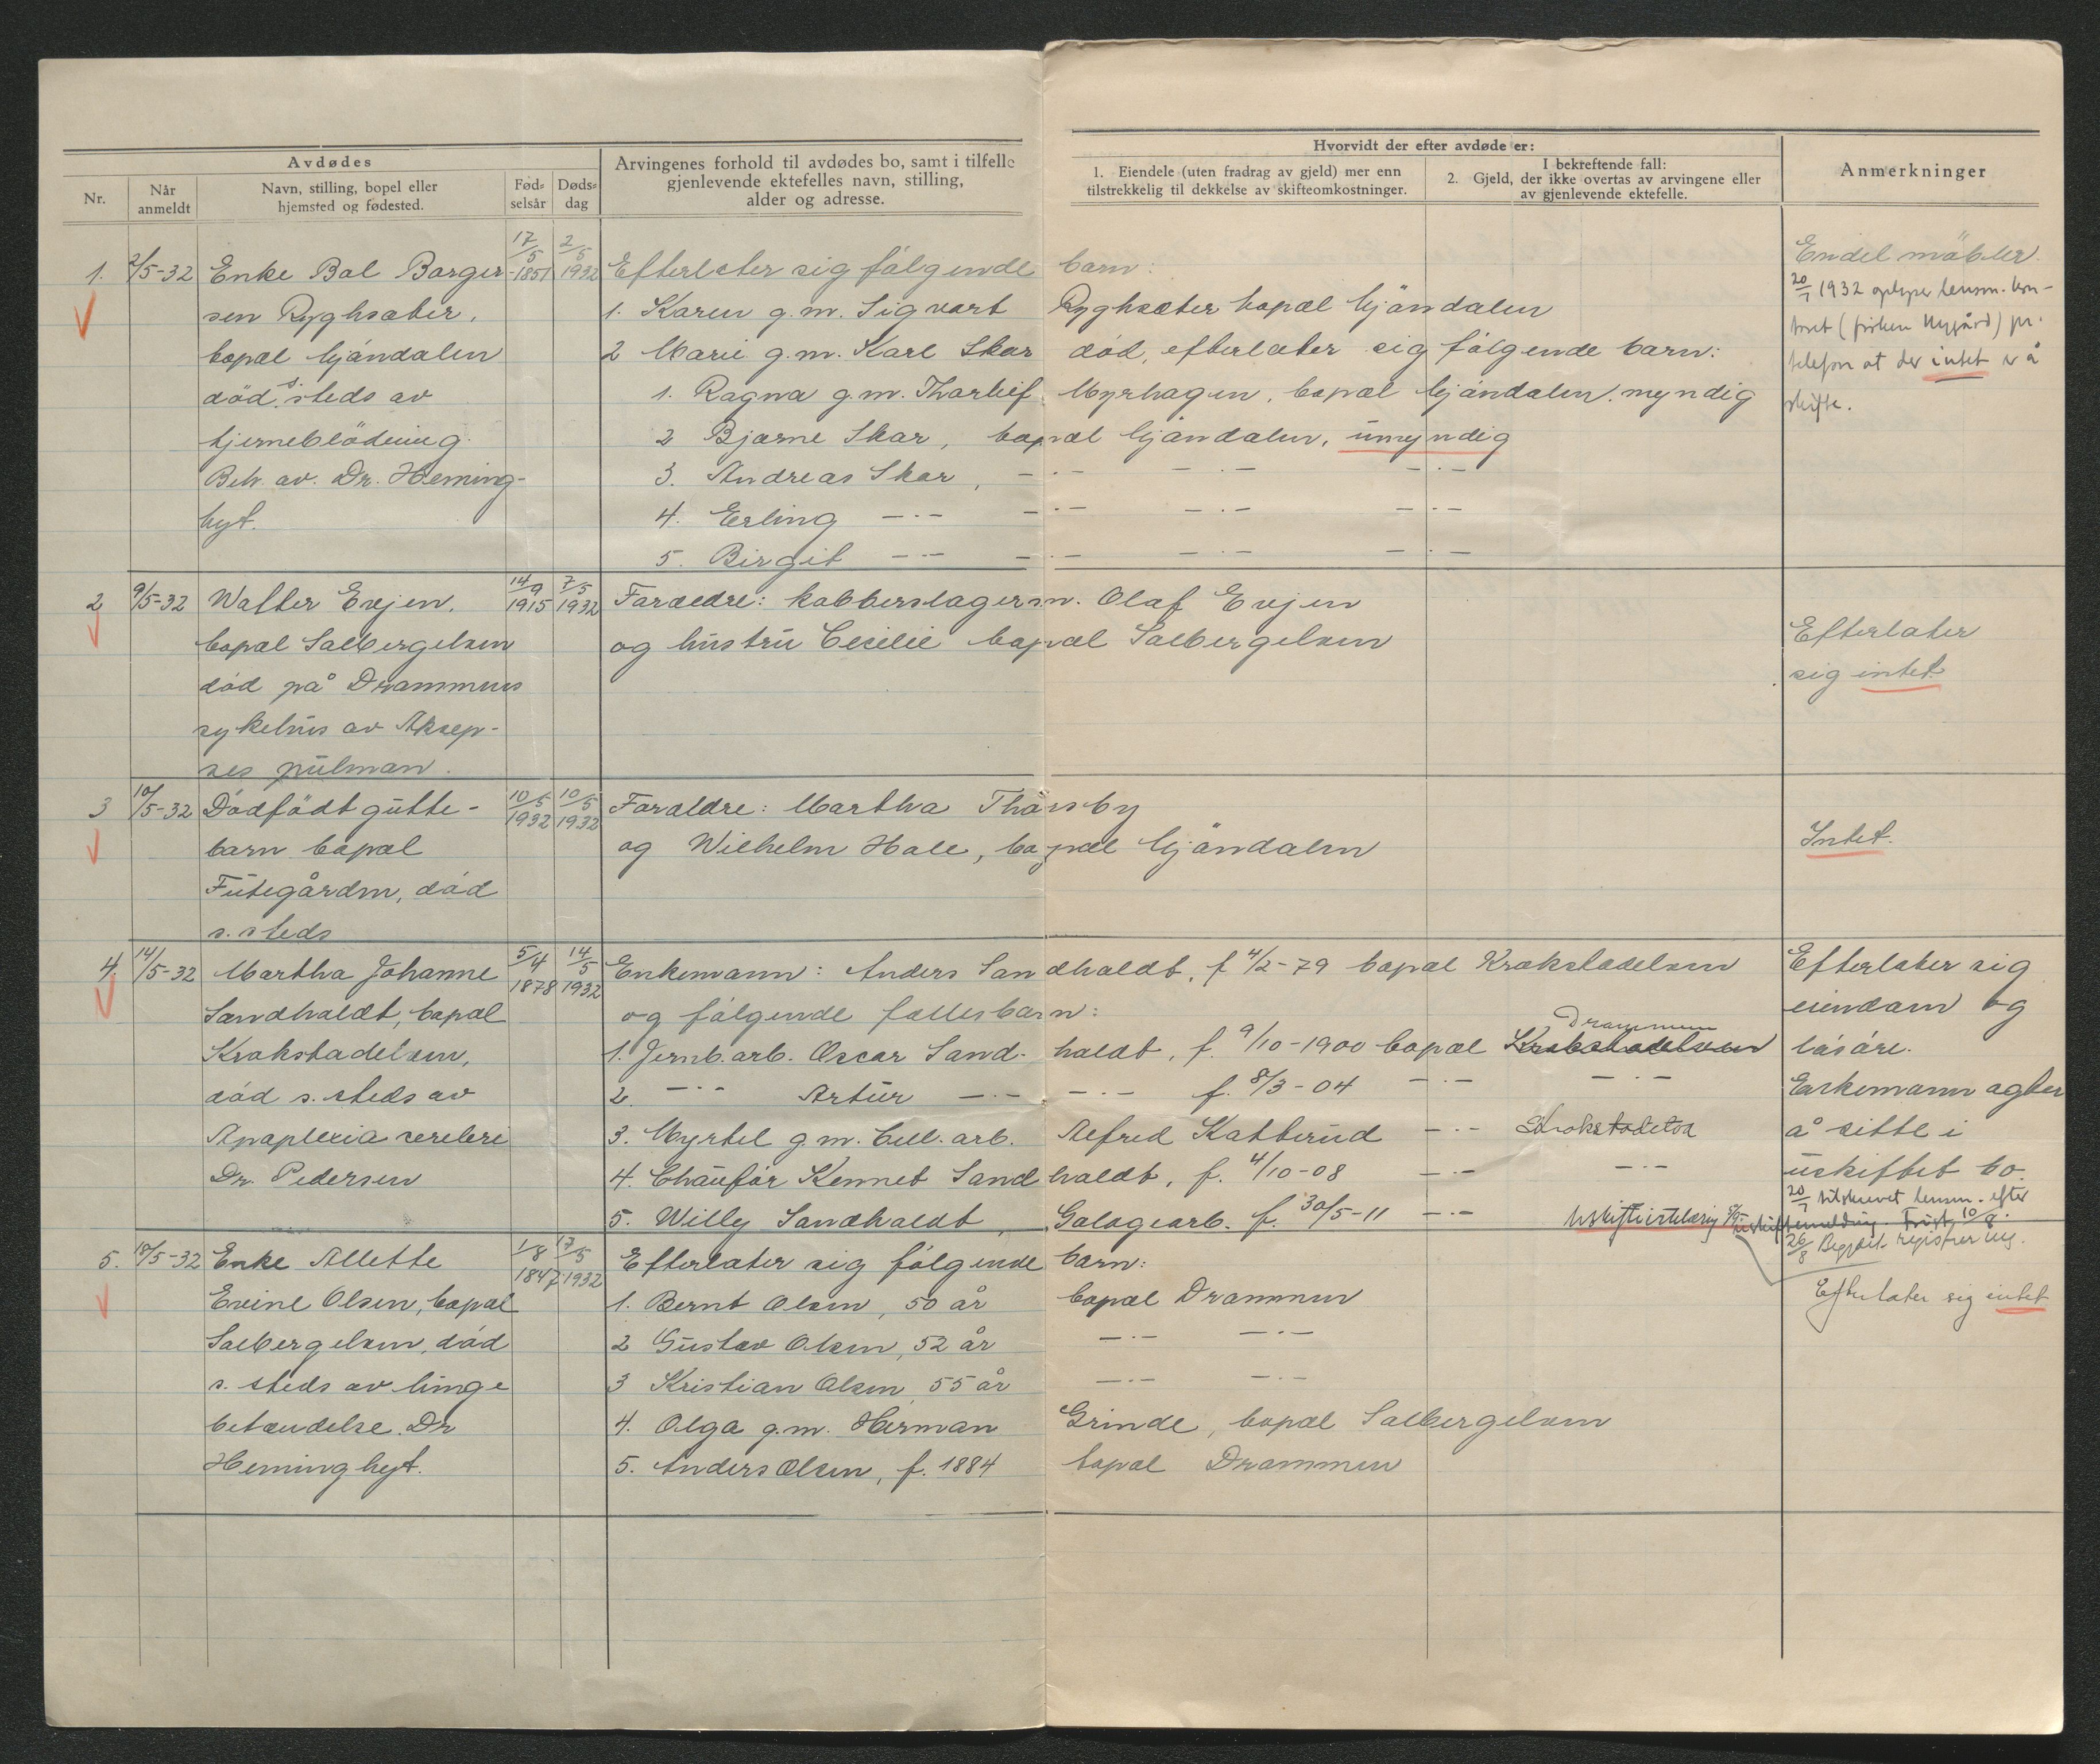 Avdødes
Nr.
Når anmeldt
Navn, stilling, bopel eller hjemsted og fødested.
Fød-selsår
Døds-dag
Arvingenes forhold til avdødes bo, samt i tilfelle gjenlevende ektefelles navn, stilling, alder og adresse.
Hvorvidt der efter avdøde er:
1. Eiendele (uten fradrag av gjeld) mer enn tilstrekkelig til dekkelse av skifteomkostninger.
I bekreftende fall:
2. Gjeld, der ikke overtas av arvingene eller av gjenlevende ektefelle.
Anmerkninger
1. 2/5-32 Enke Bol Borger- 17/5 1851 2/5 1932 Efterlater sig følgende barn:
sen Ryghsæter, 1. Karen g.m. Sigvart Ryghsæter bopæl Mjøndalen
bopæl Mjøndalen 2 Marie g.m. Karl Skar død, efterlater sig følgende barn:
død s. steds av 1. Ragna g.m. Thorleif Myrhagen, bopæl Mjøndalen. myndig
hjerneblödning. 2 Bjarne Skar, bopæl Mjøndalen, umyndig
Beh. av. Dr. Heming- 3. Andreas Skar, -·- -·- -·-
hyt. 4. Erling -·- -·- -·- -·-
5. Birgit -·- -·- -·- -·-
Endel möbler.
20/7 1932 oplyser lensm. kon-
toret (frøken Nygård) pr.
telefon at der intet er å
skifte.
2 9/5-32 Walter Evjen, 14/9 1915 7/5 1932 Forældre: kobberslagersv. Olaf Evjen
bopæl Solbergelven og hustru Cecilie bopæl Solbergelven
død på Drammens
sykehus av
Efterlater
sig intet
3 10/5-32 Dödfödt gutte- 10/5 1932 10/5 1932 Foraldre: Martha Thorsby
barn bopæl og Wilhelm Hole, bopæl Mjöndalen
Futegården, död
s. steds
Intet.
4. 14/5-32 Martha Johanne 5/4 1878 14/5 1932 Enkemann: Anders Sandholdt, f 4/2-79 bopæl Krokstadelven
Sandholdt, bopæl og følgende fellesbarn:
Krokstadelven, 1. Jernb.arb. Oscar Sandholdt, f. 9/10-1900 bopæl Krokstadelven Drammen
död s. steds av 2. -·- Artur -·- -·- f. 8/3-04 -·- -·-
Apoplexia cerebri 3. Myrtel g.m. Cell.arb. Alfred Katterud -·- Krokstadelva
Dr. Pedersen 4. Chaufør Kennet Sandholdt, f. 4/10-08 -·- -·-
5. Willy Sandholdt, Galogearb. f. 30/5-11 -·-
Efterlater sig
eiendom og
lösöre.
Enkemann agter
å sitte i
uskiftet bo.
20/7 tilskrevet lensm. efter
uskiftemelding. Frist 10/8.
26/8 Begjært registrering.
5. 18/5-32 Enke Allette 1/8 1847 17/5 1932 Efterlater sig følgende barn:
Evine Olsen, bopæl 1. Bernt Olsen, 50 år bopæl Drammen
Solbergelven, död 2 Gustav Olsen, 52 år -·- -·-
s. steds av lunge 3 Kristian Olsen 55 år -·- -·-
betændelse. Dr 4. Olga g.m. Herman Grinde, bopæl Solbergelven
Heminghyt. 5. Anders Olsen, f. 1884 bopæl Drammen
Efterlater sig intet